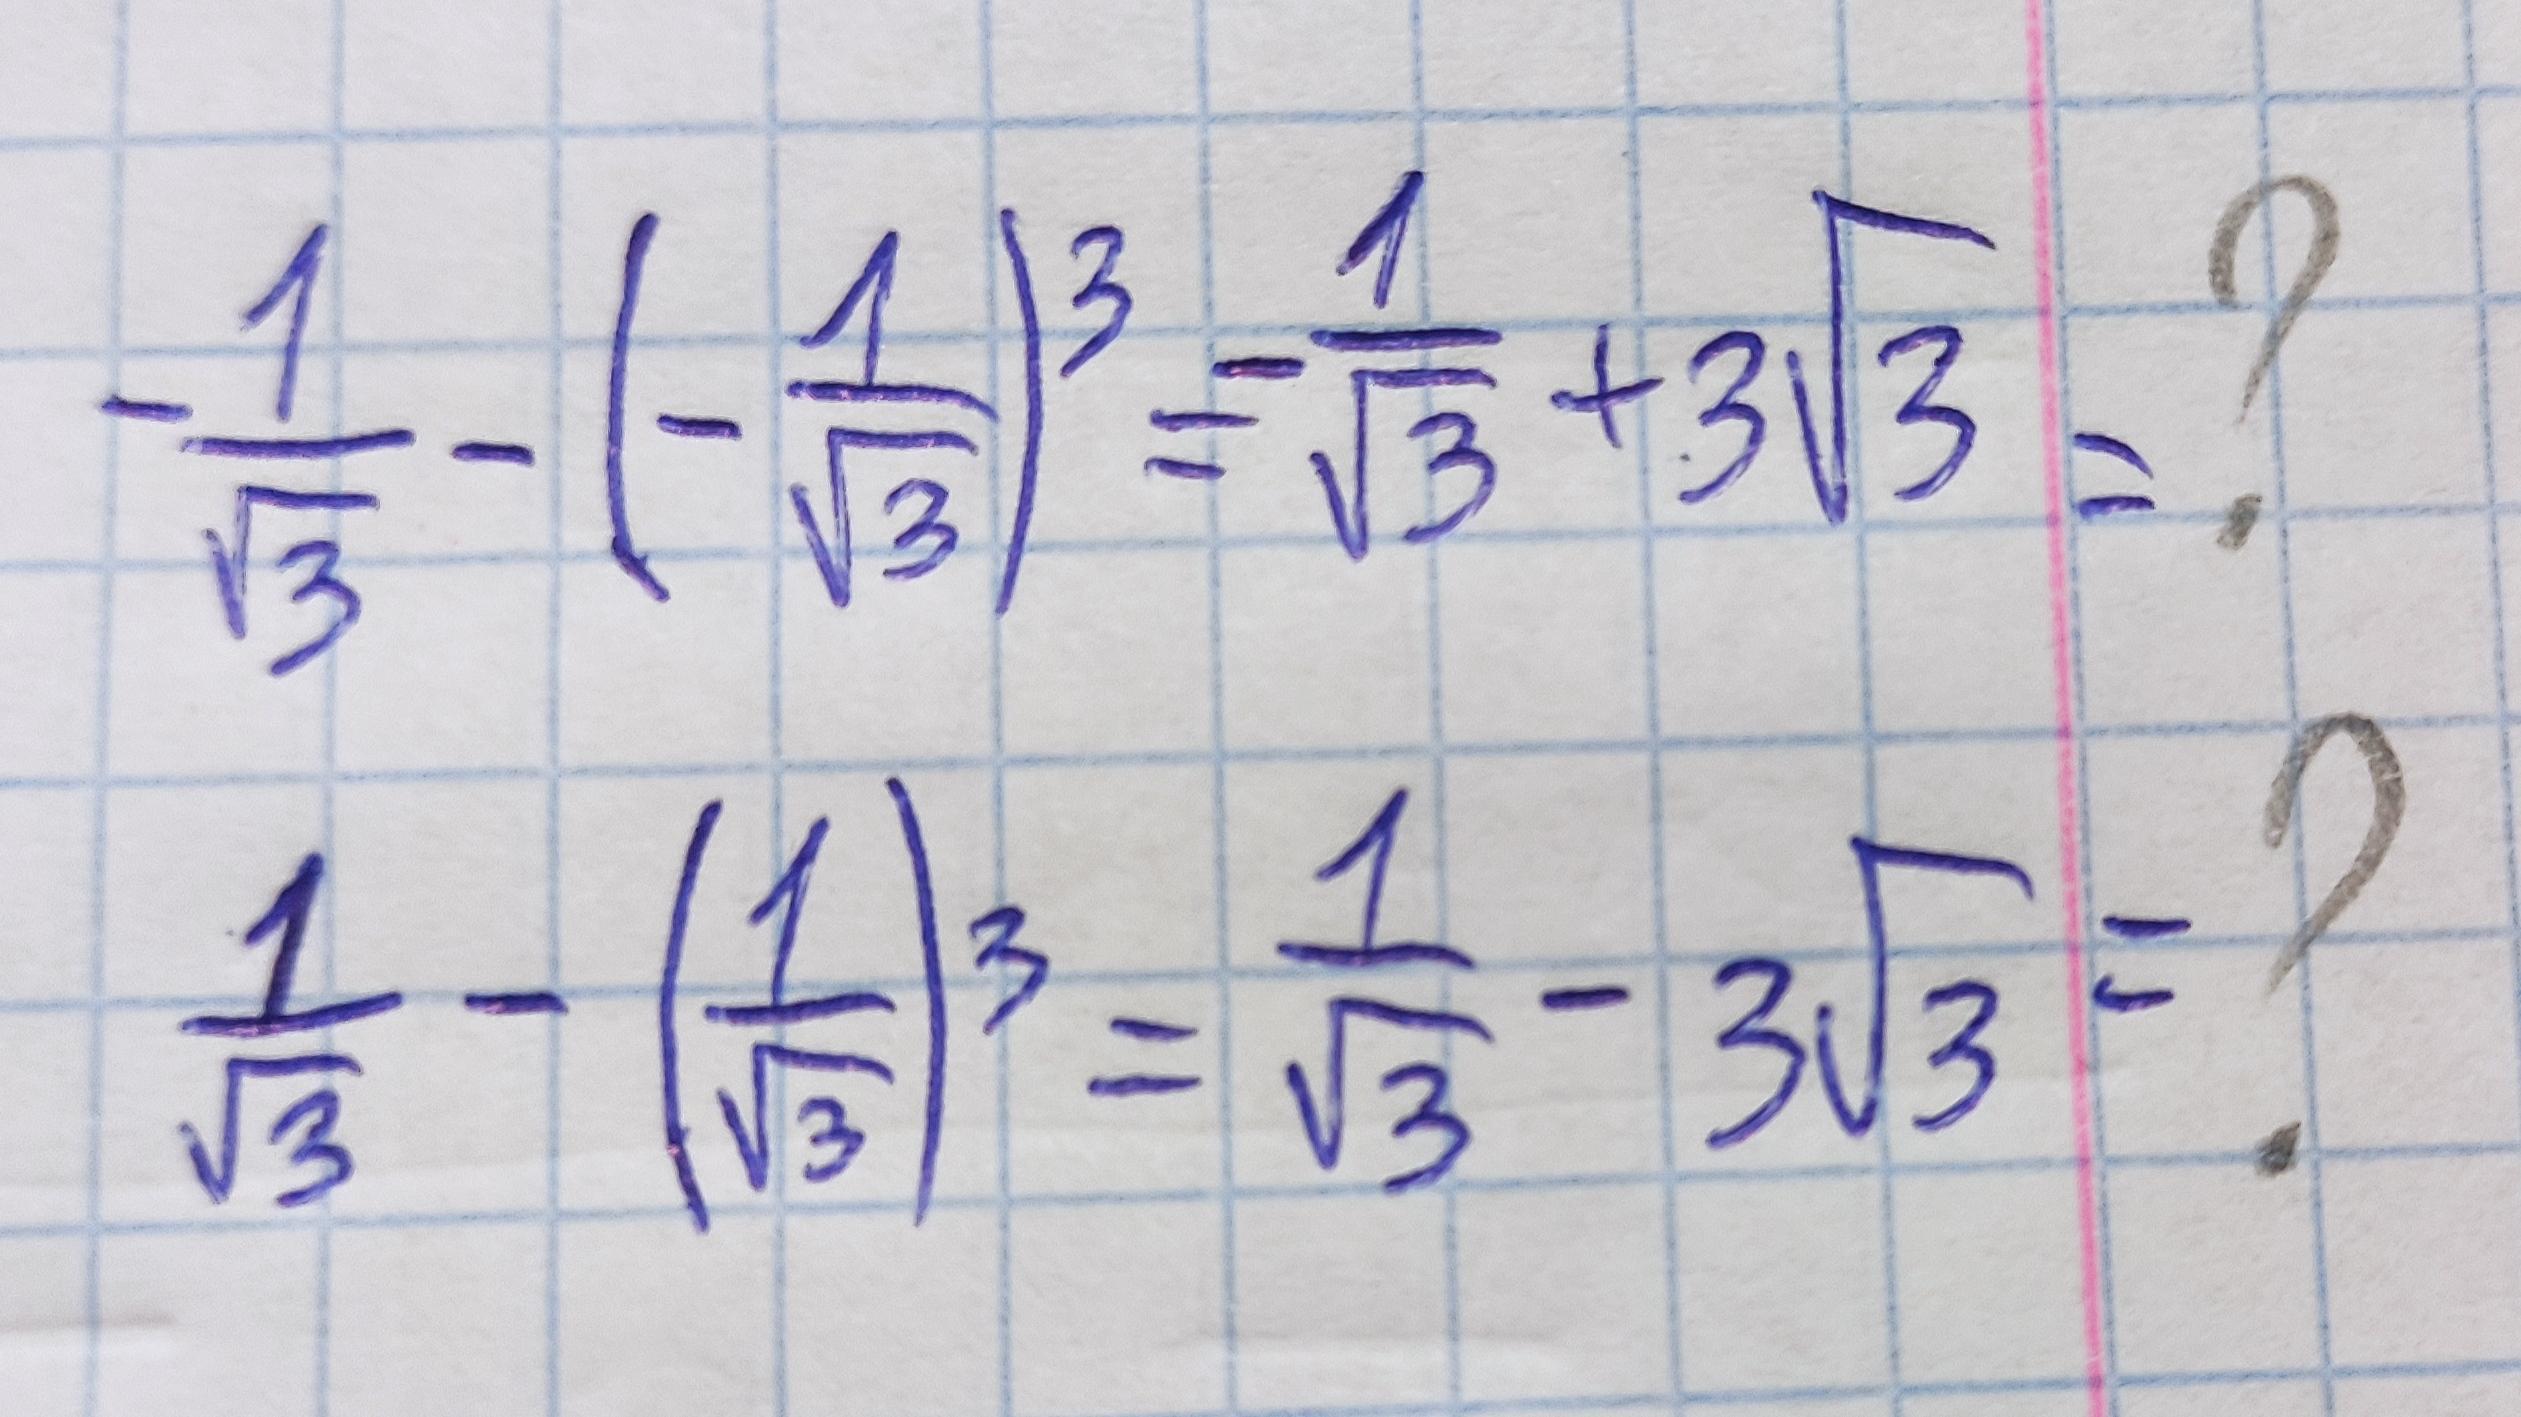 -1/√3 - (-1/√3)³ = -1/√3 + 3√3 = ?
1/√3 - (1/√3)³ = 1/√3 - 3√3 = ?